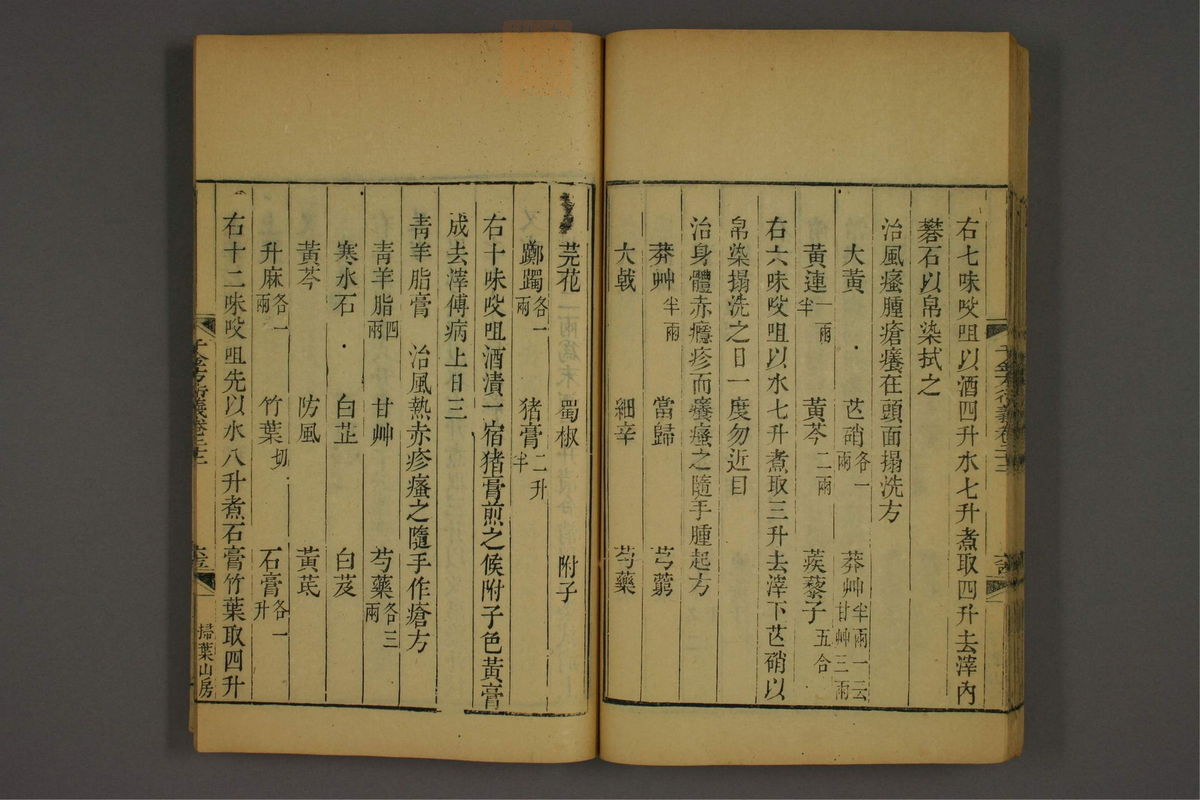 右七味㕮咀以酒四升水七升煮取四升去滓內
礬石以帛染拭之
治風瘙腫瘡癢在頭面搨洗方
大黃 芒硝各一兩 莽艸半兩一云甘艸三兩
黃連一兩半 黃芩二兩 蒺藜子五合
右六味㕮咀以水七升煮取三升去滓下芒硝以
帛染搨洗之日一度勿近目
治身體赤癮疹而癢瘙之隨手腫起方
莽艸半兩 當歸 芎藭
大戟 細辛 芍藥
芫花 蜀椒 附子
躑躅各一兩 猪膏二升半
右十味㕮咀酒漬一宿猪膏煎之候附子色黃膏
成去滓傅病上日三
青羊脂膏 治風熱赤疹瘙之隨手作瘡方
青羊脂四兩 甘艸 芍藥各三兩
寒水石 白芷 白芨
黃芩 防風 黃芪
升麻各一兩 竹葉切 石膏各一升
右十二味㕮咀先以水八升煮石膏竹葉取四升
掃葉山房